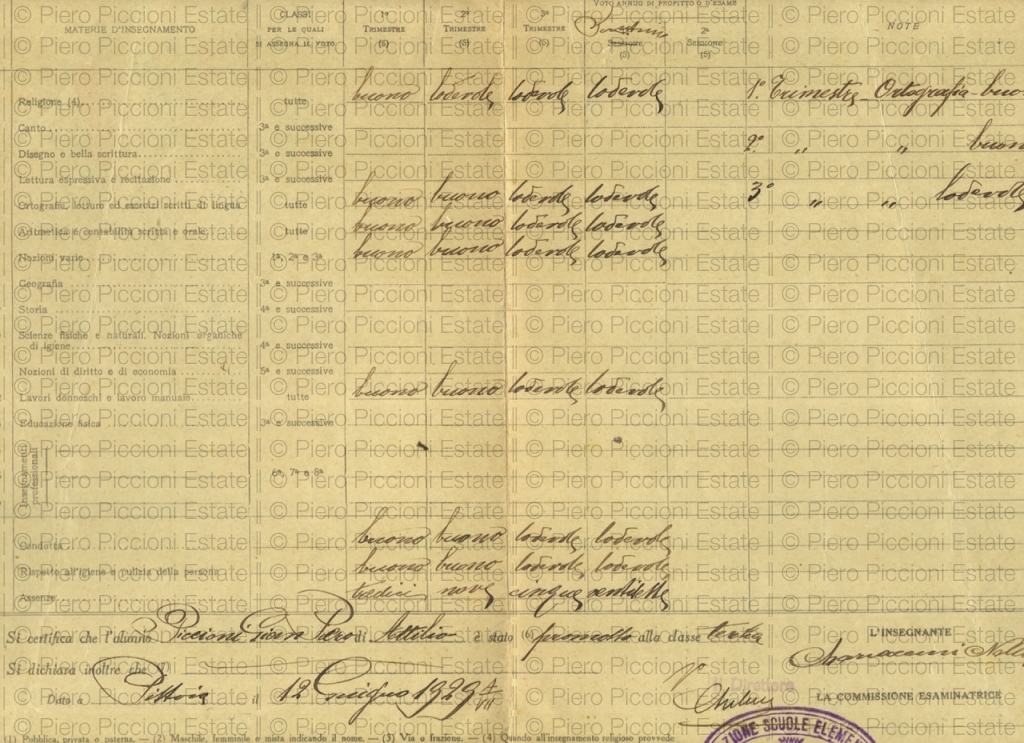 VOTO ANNUO DI PROFITTO O D'ESAME
MATERIE D'INSEGNAMENTO
CLASSI PER LE QUALI SI ASSEGNA IL VOTO
1º TRIMESTRE (5)
2º TRIMESTRE (5)
3º TRIMESTRE (5)
Sessione (5)
2ª Sessione (5)
NOTE
Religione (4) tutte buono lodevole lodevole lodevole 1º. Trimestre - Ortografia - buo
Canto 3ª e successive
Disegno e bella scrittura 3ª e successive 2º " " buon
Lettura espressiva e recitazione 3ª e successive
Ortografia, lettura ed esercizi scritti di lingua tutte buono buono lodevole lodevole 3º " " lodevole
Aritmetica e contabilità scritta e orale tutte buono buono lodevole lodevole
Nozioni varie 1ª, 2ª e 3ª buono buono lodevole lodevole
Geografia 3ª e successive
Storia 4ª e successive
Scienze fisiche e naturali. Nozioni organiche
di igiene 4ª e successive
Nozioni di diritto e di economia 5ª e successive
Lavori donneschi e lavoro manuale tutte buono buono lodevole lodevole
Educazione fisica 3ª e successive
Insegnamenti professionali 6ª, 7ª e 8ª
Condotta buono buono lodevole lodevole
Rispetto all'igiene e pulizia della persona buono buono lodevole lodevole
Assenze tredici nove cinque ventisette
Si certifica che l'alunno Piccioni Gian Piero di Attilio è stato (6) promosso alla classe terza
L'INSEGNANTE
Si dichiara inoltre che (7)
Il Direttore
LA COMMISSIONE ESAMINATRICE
Dato a Pittoria il 12 Giugno 1929 VII
ZIONE SCUOLE ELEMEN
(1) Pubblica, privata o paterna. — (2) Maschile, femminile o mista indicando il nome. — (3) Via o frazione. — (4) Quando all'insegnamento religioso provvede
© Piero Piccioni Estate